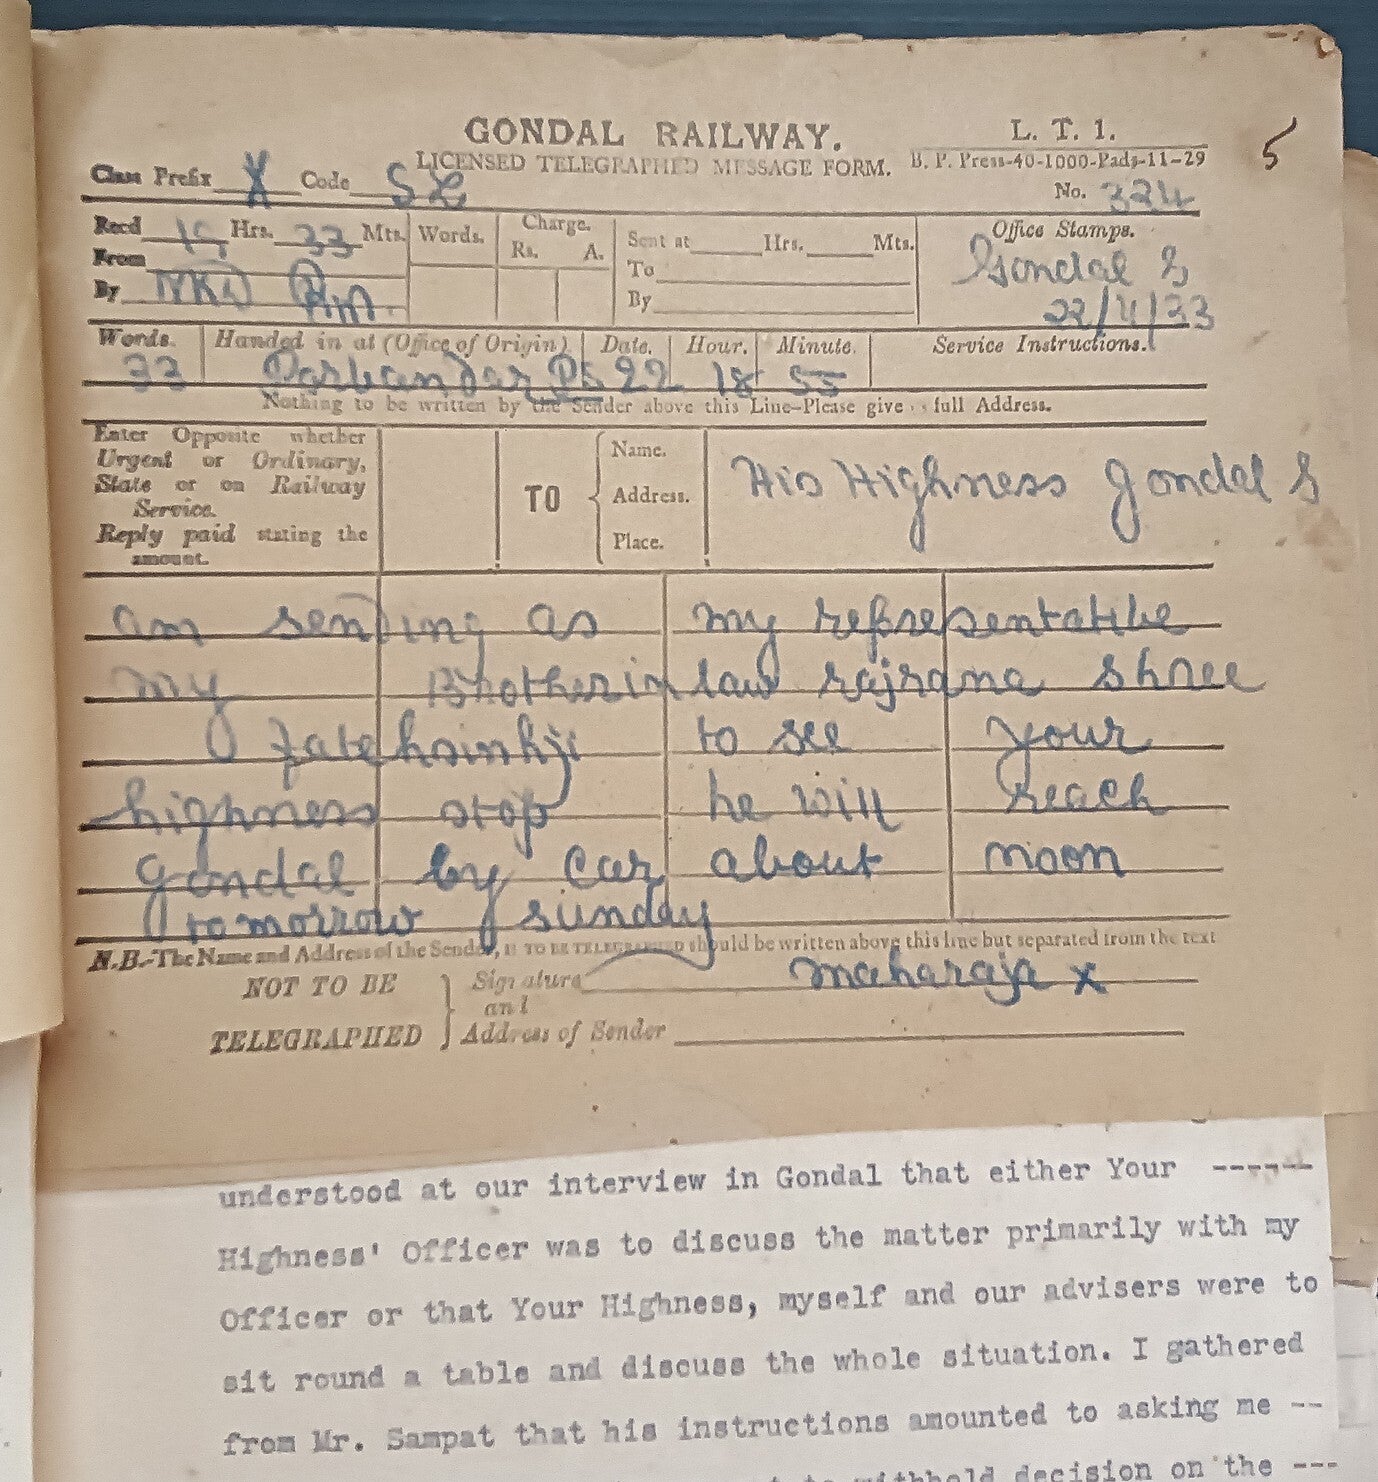 5
GONDAL RAILWAY. L. T. 1.
LICENSED TELEGRAPHED MESSAGE FORM. B. P. Press-40-1000-Pads-11-29
Class Prefix X Code No. 334
Recd 19 Hrs. 33 Mts. Words. Charge. Rs. A. Sent at Hrs. Mts. Office Stamps.
From To Gondal S
By By 22/4/33
Words. Handed in at (Office of Origin) Date. Hour. Minute. Service Instructions.
33 Porbandar 22 18 55
Nothing to be written by the Sender above this Line-Please give full Address.
Enter Opposite whether
Urgent or Ordinary,
State or on Railway
Service.
Reply paid stating the
amount.
TO
Name.
Address.
Place.
His Highness Gondal S
am sending as my representative
my Brotherinlaw rajrana shree
fatehsinhji to see your
highness stop he will reach
gondal by car about noon
tomorrow sunday
N.B.-The Name and Address of the Sender, IF TO BE TELEGRAPHED should be written above this line but separated from the text
maharaja X
NOT TO BE TELEGRAPHED
Signature
and
Address of Sender
understood at our interview in Gondal that either Your ------
Highness' Officer was to discuss the matter primarily with my
Officer or that Your Highness, myself and our advisers were to
sit round a table and discuss the whole situation. I gathered
from Mr. Sampat that his instructions amounted to asking me --
to withhold decision on the ---